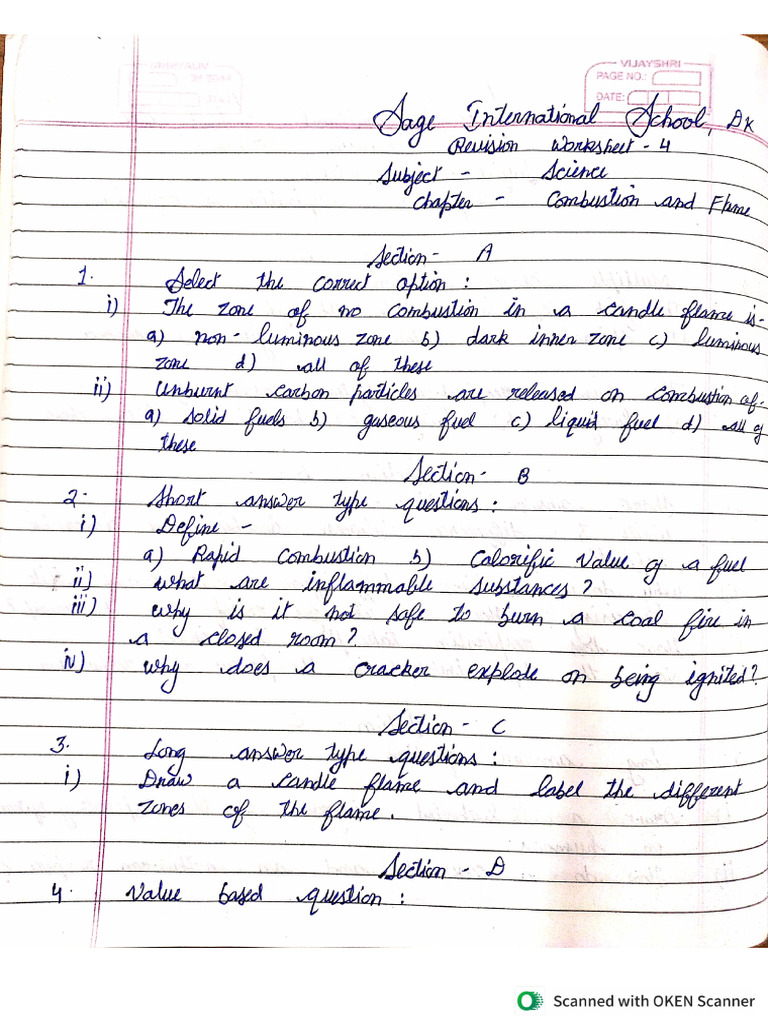 VIJAYSHRI
PAGE NO.:
DATE:
Sage International School, DK
Revision Worksheet - 4
Subject - Science
Chapter - Combustion and Flame
Section - A
1. Select the correct option :
i) The zone of no combustion in a candle flame is-
a) non-luminous zone b) dark inner zone c) luminous
zone d) all of these
ii) Unburnt carbon particles are released on combustion of-
a) solid fuels b) gaseous fuel c) liquid fuel d) all of
these
Section - B
2. Short answer type questions :
i) Define -
a) Rapid Combustion b) Calorific Value of a fuel
ii) what are inflammable substances?
iii) why is it not safe to burn a coal fire in
a closed room?
iv) why does a cracker explode on being ignited?
Section - C
3. Long answer type questions :
i) Draw a candle flame and label the different
zones of the flame.
Section - D
4. Value based question :
Scanned with OKEN Scanner